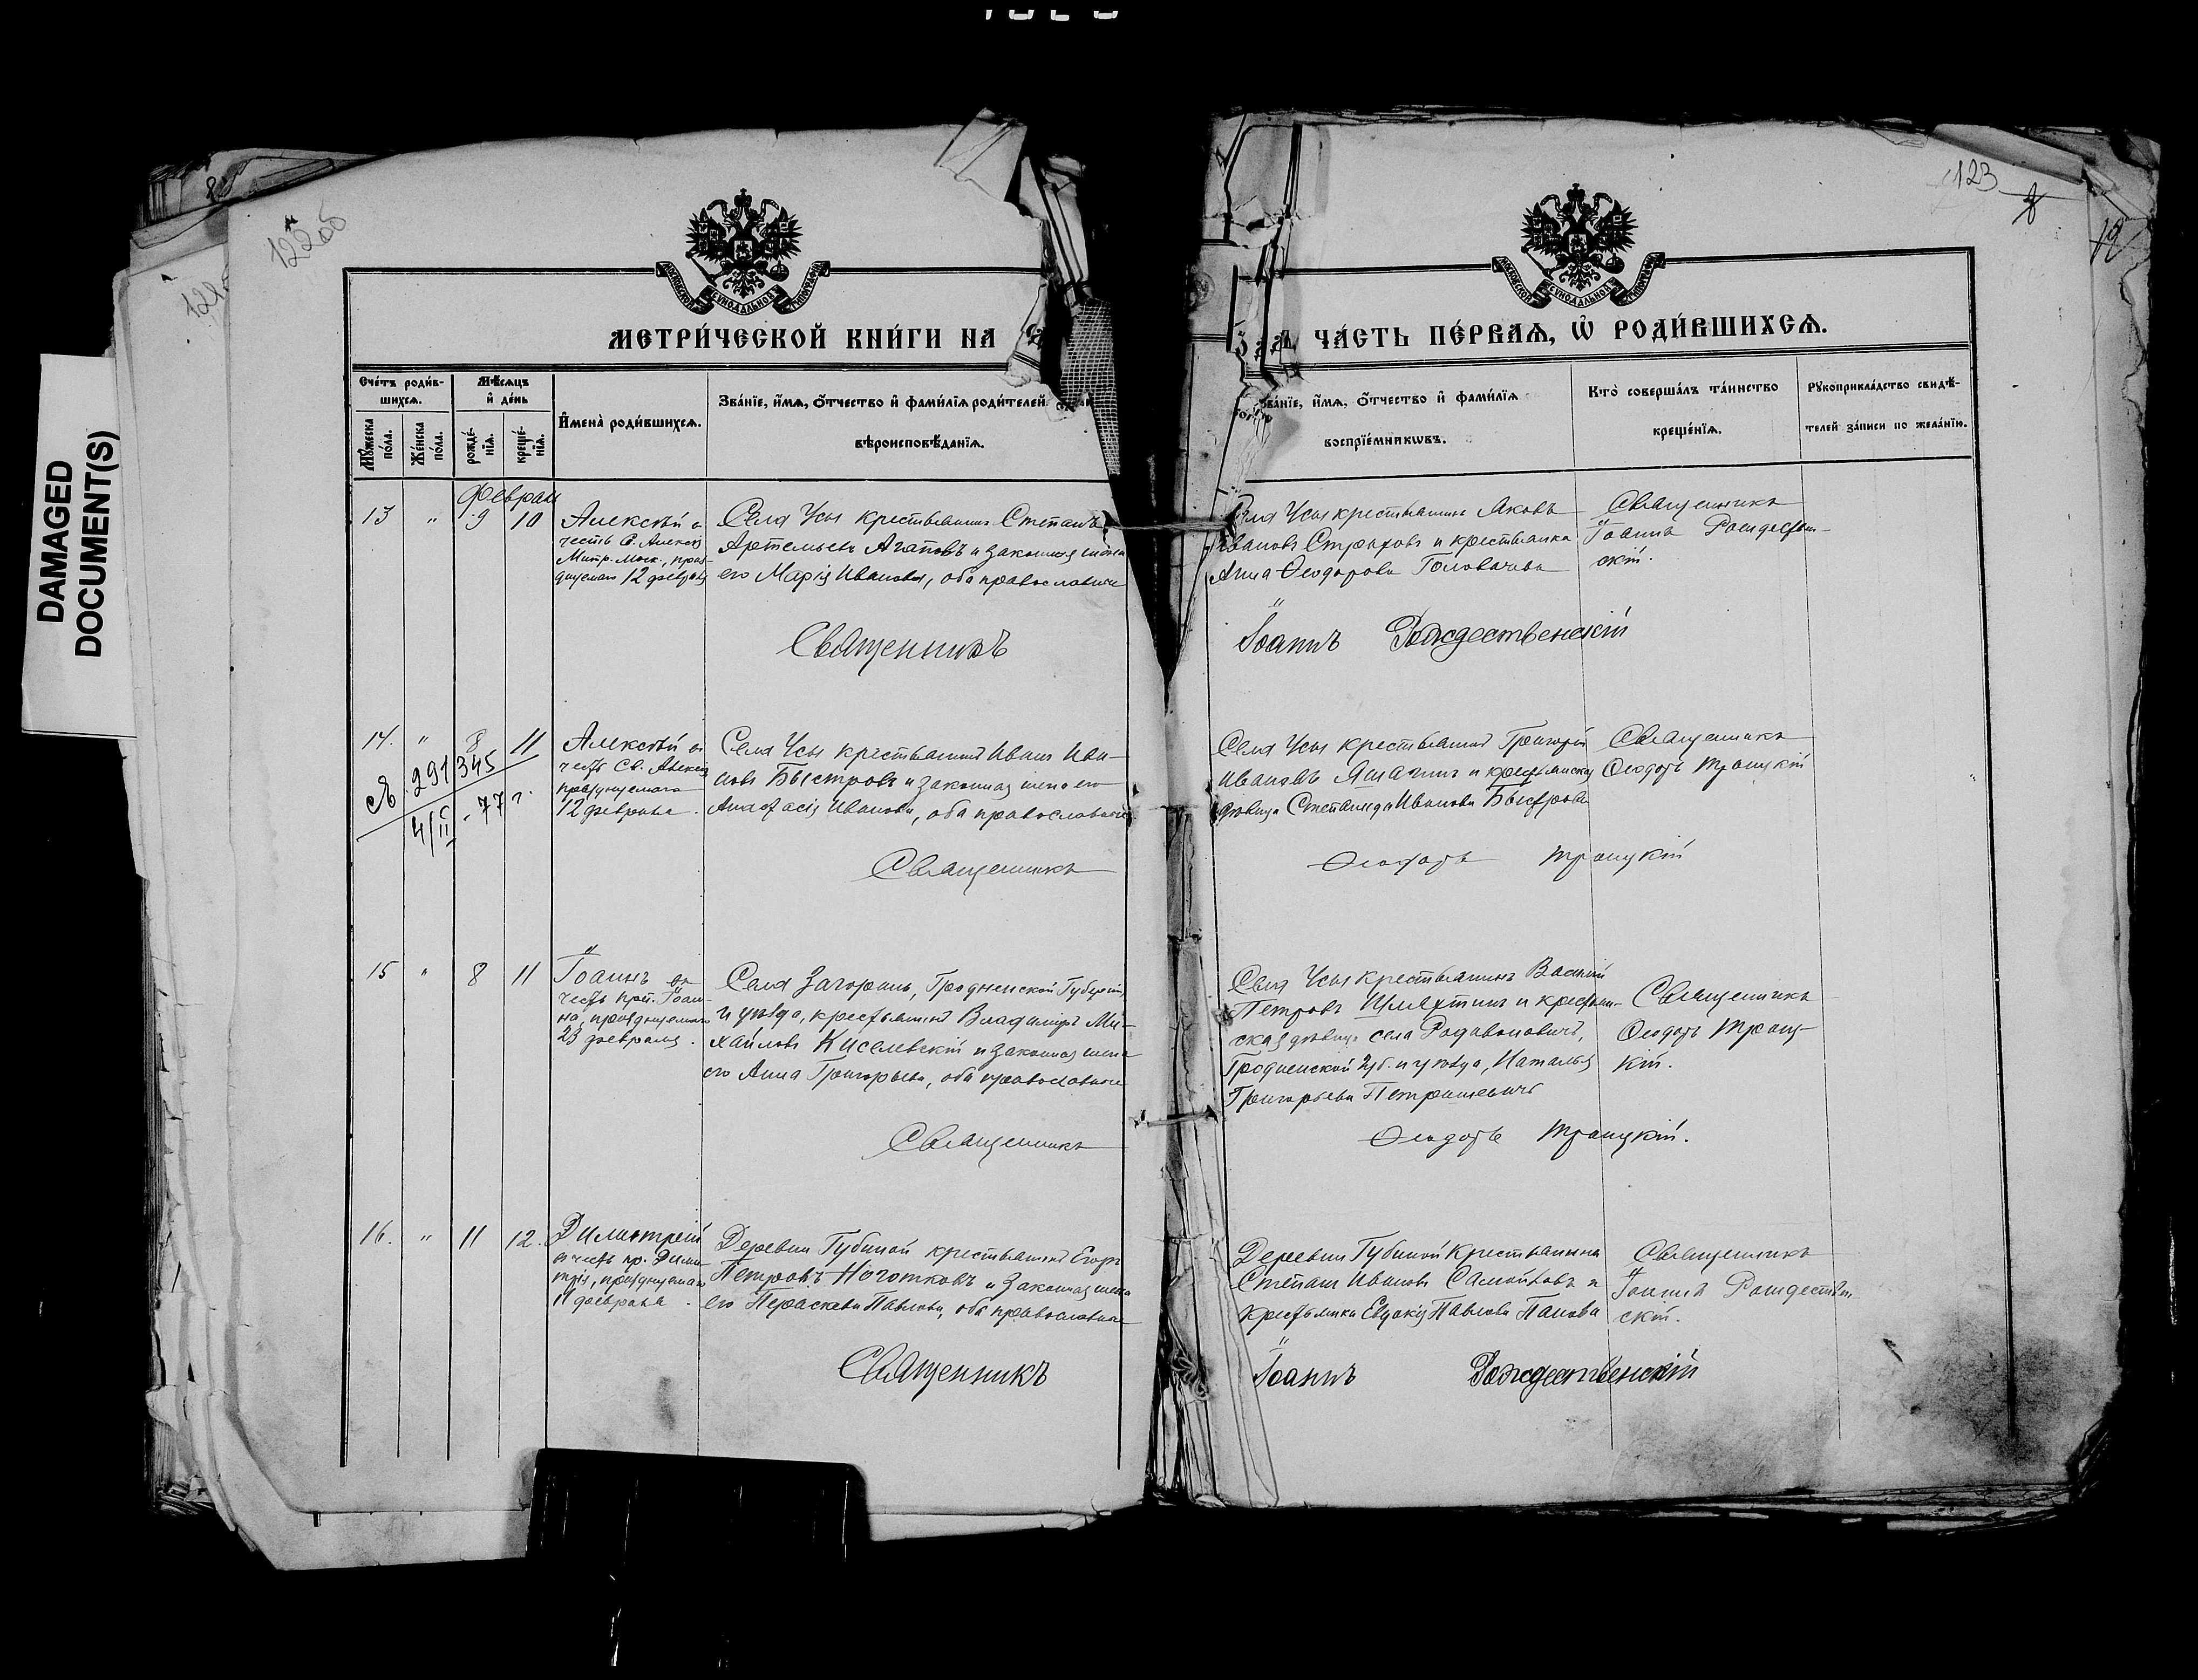 DAMAGED
DOCUMENT(S)
122об
123
МЕТРИ́ЧЕСКОЙ КНИ́ГИ НА
ЧА́СТЬ ПЕ́РВАЯ, Ѡ РОДИ́ВШИХСЯ.
Сче́тъ роди́в-
шихся.
Мѣ́сяцъ
и́ де́нь
Му́жеска
по́ла.
Же́нска
по́ла.
рожде́-
нїя.
креще́-
нїя.
И҆мена̀ роди́вшихся.
Зва́нїе, и҆́мя, ѻ҆́тчество и҆ фами́лїя роди́телей
вѣроисповѣ́данїя.
Зва́нїе, и҆́мя, ѻ҆́тчество и҆ фами́лїя
воспрїе́мникωвъ.
Кто̀ соверша́лъ та́инство
креще́нїя.
Рꙋкоприкла́дство свидѣ́-
телей за́писи по жела́нїю.
Феврал
13 " 9 10
Алексѣй въ
честь С. Алексѣя
Митр. Моск., празд-
днуемаго 12 февраля
Села Усы крестьянинъ Степанъ
Артемьевъ Агаповъ и законная жена
его Марія Иванова, оба православные
Села Усы крестьянинъ Яковъ
Ивановъ и крестьянка
Анна Ѳеодорова Головачева
Священникъ
Іоаннъ Рождествен-
скій.
Священникъ Іоаннъ Рождественскій
14. " 8 11
№ 291/345
4/II - 77 г.
Алексѣй въ
честь Св. Алексѣя
празднуемаго
12 февраля.
Села Усы крестьянинъ Иванъ Ива-
новъ Быстровъ и законная жена его
Анастасія Иванова, оба православные
Села Усы крестьянинъ Григорій
Ивановъ и крестьянская
дѣвица Степанида Иванова Быстрова
Священникъ
Ѳеодотъ Троицкій
Священникъ Ѳеодотъ Троицкій
15 " 8 11
Іоаннъ въ
честь прп. Іоан-
на, празднуемаго
23 февраля.
Села Загораны, Гродненской Губерніи
и уѣзда, крестьянинъ Владиміръ Ми-
хайловъ Киселевскій и законная жена
его Анна Григорьева, оба православные
Села Усы крестьянинъ Василій
Петровъ и крестьян-
ская дѣвица села
Гродненской губ. и уѣзда, Наталья
Григорьева Петрашевичъ
Священникъ
Ѳеодотъ Троиц-
кій.
Священникъ Ѳеодотъ Троицкій.
16. " 11 12.
Димитрій
въ честь пр. Дими-
трія, празднуемаго
11 февраля.
Деревни Губиной крестьянинъ Егоръ
Петровъ Ноготковъ и законная жена
его Параскева Павлова, оба православные
Деревни Губиной крестьянинъ
Степанъ Ивановъ Самойловъ и
крестьянка Евдокія Павлова Панова
Священникъ
Іоаннъ Рождествен-
скій.
Священникъ Іоаннъ Рождественскій